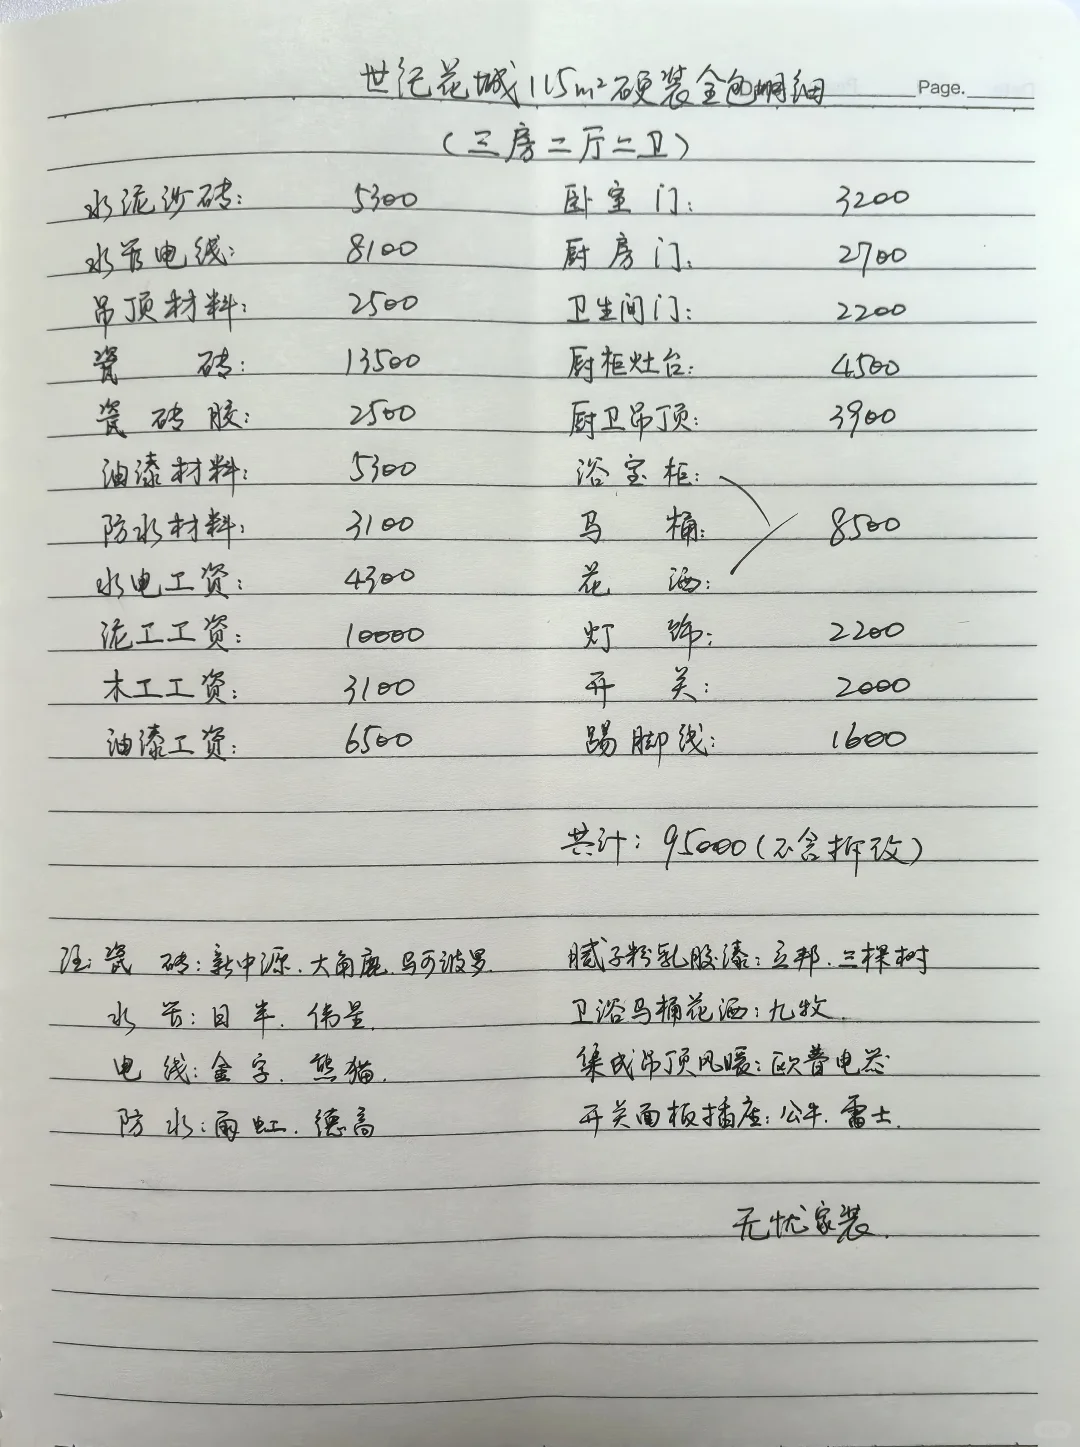 世纪花城115m²硬装全包明细
Page.
(三房二厅二卫)
水泥沙砖: 5300 卧室门: 3200
水管电线: 8100 厨房门: 2700
吊顶材料: 2500 卫生间门: 2200
瓷砖: 13500 厨柜灶台: 4500
瓷砖胶: 2500 厨卫吊顶: 3900
油漆材料: 5300 浴室柜:
防水材料: 3100 马桶: 8500
水电工资: 4300 花洒:
泥工工资: 10000 灯饰: 2200
木工工资: 3100 开关: 2000
油漆工资: 6500 踢脚线: 1600
共计: 95000(不含拆改)
注: 瓷砖: 新中源. 大角鹿. 马可波罗. 腻子粉乳胶漆: 立邦. 三棵树
水管: 日丰. 伟星. 卫浴马桶花洒: 九牧.
电线: 金字. 熊猫. 集成吊顶风暖: 欧普电器
防水: 雨虹. 德高 开关面板插座: 公牛. 雷士.
无忧家装.